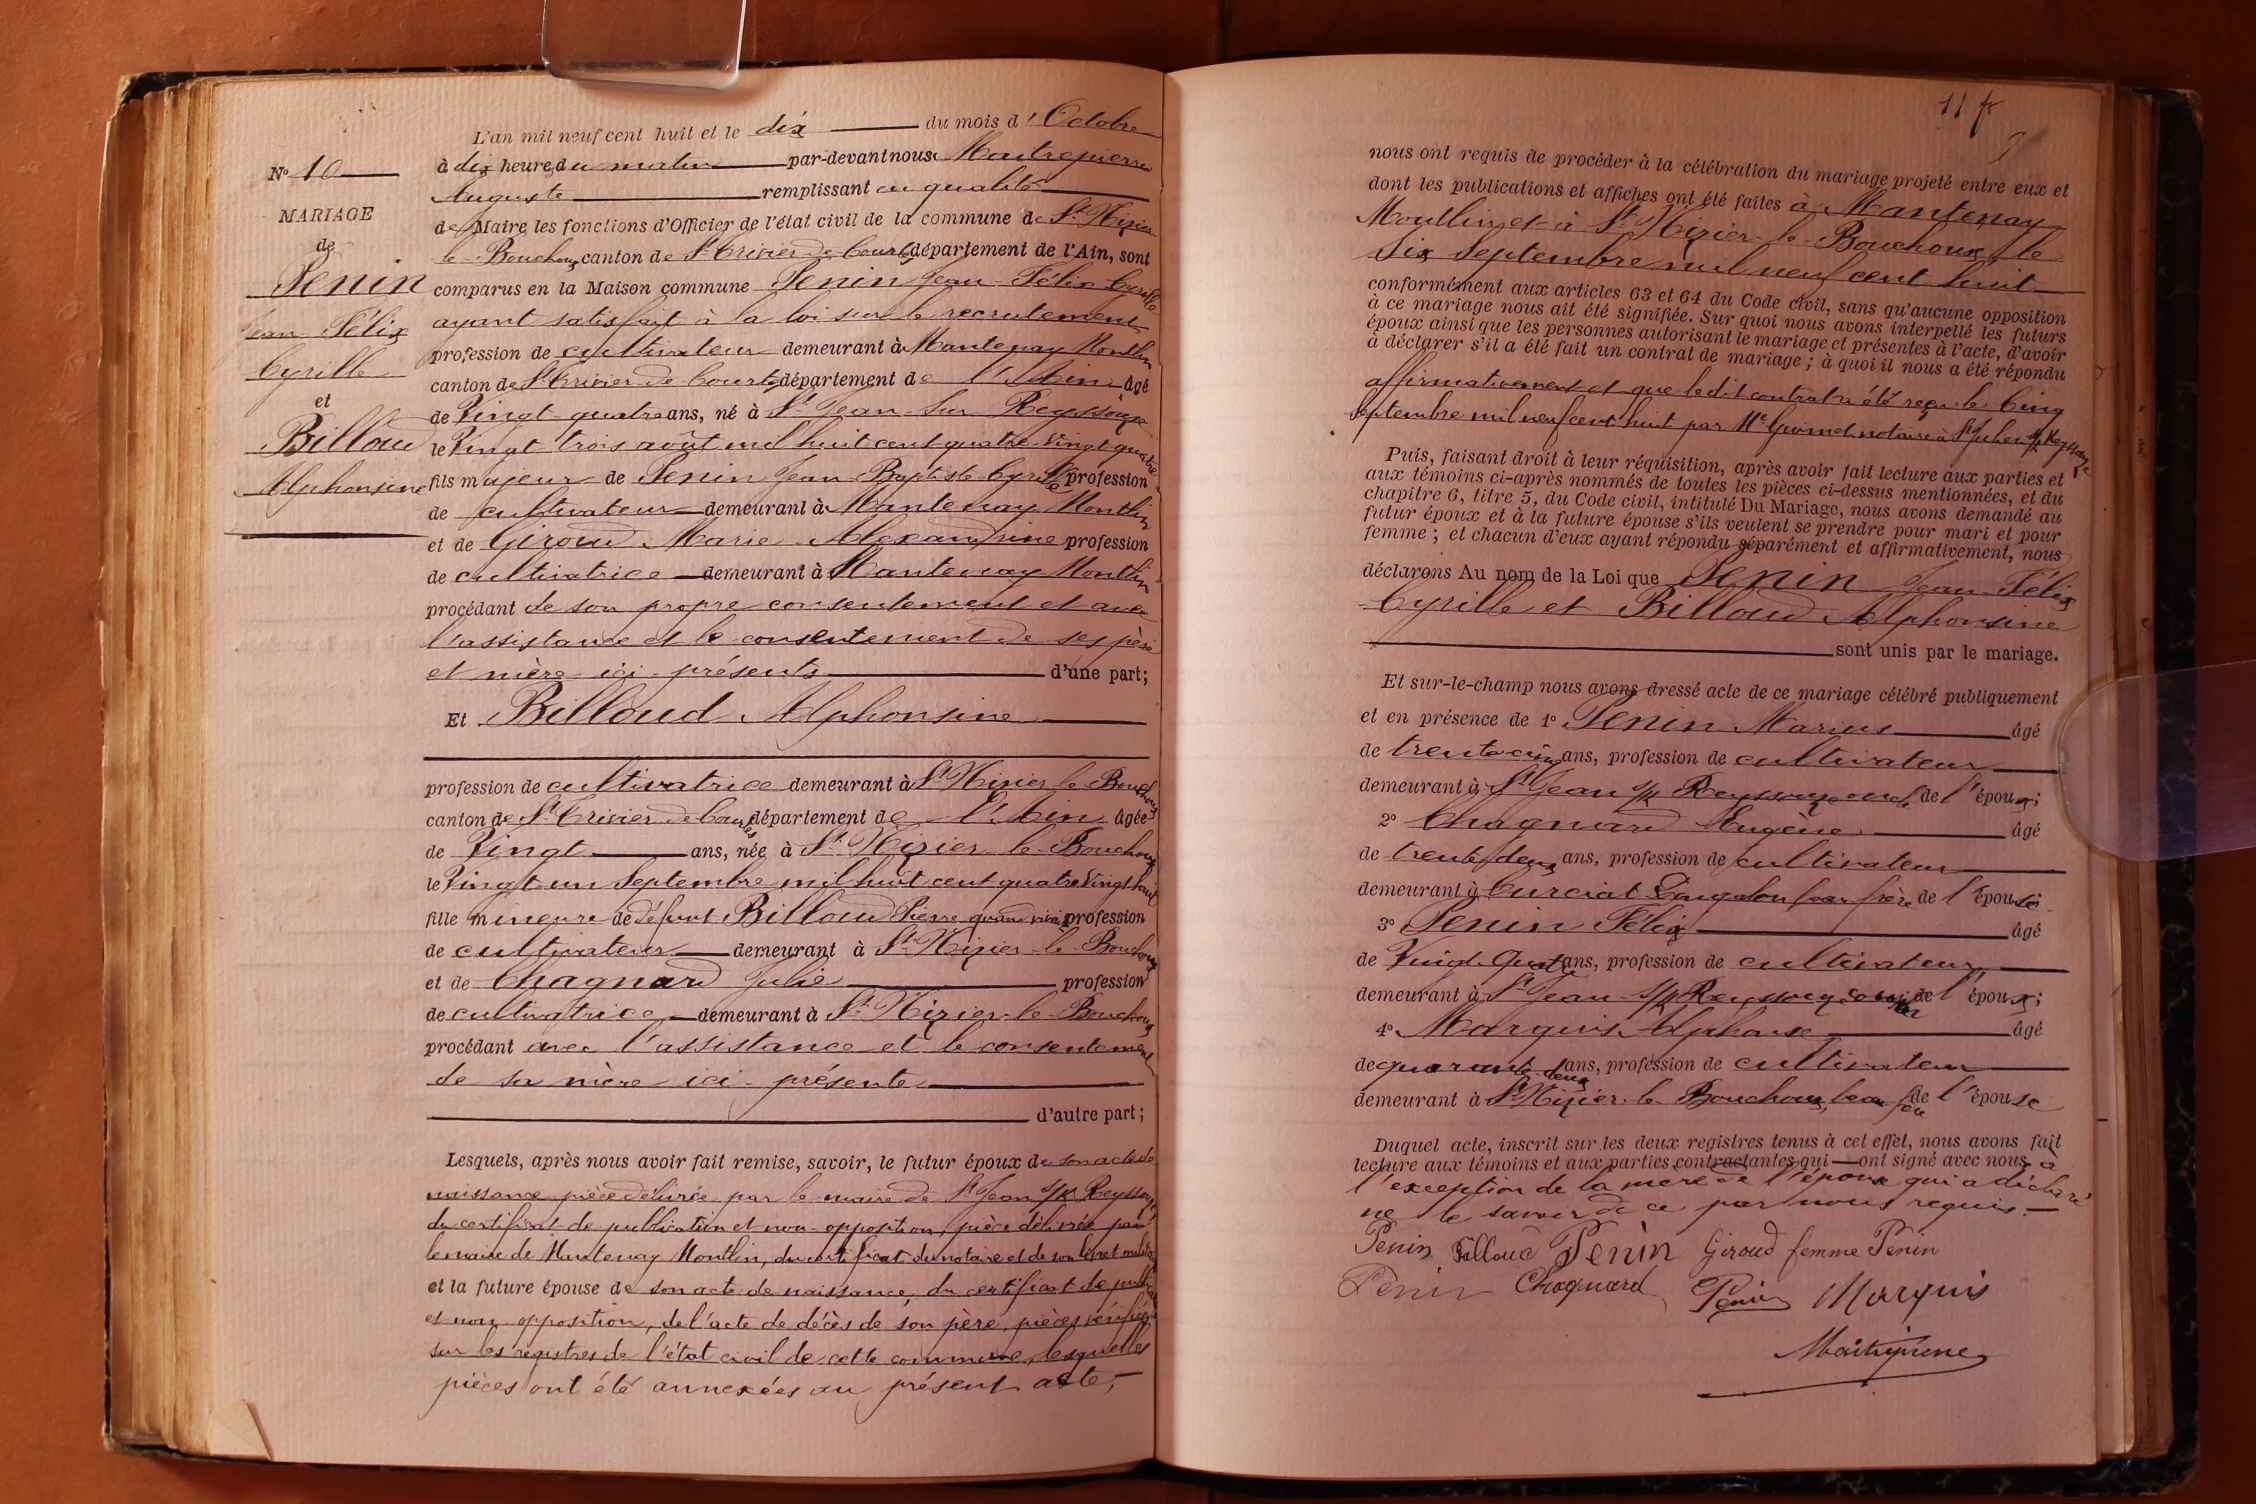 L'an mil neuf cent huit et le dix du mois d'Octobre
à dix heures du matin par-devant nous Maitrepierre
Auguste remplissant en qualité
de Maire les fonctions d'Officier de l'état civil de la commune de St Nizier
le Bouchoux canton de St Trivier de Courtes département de l'Ain, sont
comparus en la Maison commune Penin Jean Félix Cyrille
ayant satisfait à la loi sur le recrutement
profession de cultivateur demeurant à Mantenay Montlin
canton de St Trivier de Courtes département de l'Ain âgé
de Vingt quatre ans, né à St Jean sur Reyssouze
le Vingt trois août mil huit cent quatre vingt quatre
fils majeur de Penin Jean Baptiste Cyrille profession
de cultivateur demeurant à Mantenay Montlin
et de Giroud Marie Alexandrine profession
de cultivatrice demeurant à Mantenay Montlin
procédant de son propre consentement et avec
l'assistance et le consentement de ses père
et mère ici présents d'une part;
Et Billoud Alphonsine
profession de cultivatrice demeurant à St Nizier le Bouchoux
canton de St Trivier de Courtes département de l'Ain âgée
de Vingt ans, née à St Nizier le Bouchoux
le Vingt un Septembre mil huit cent quatre Vingt huit
fille mineure de défunt Billoud Pierre quand vivait profession
de cultivateur demeurant à St Nizier le Bouchoux
et de Chagnard Julie profession
de cultivatrice demeurant à St Nizier le Bouchoux
procédant avec l'assistance et le consentement
de sa mère ici présente
d'autre part;
Lesquels, après nous avoir fait remise, savoir, le futur époux de son acte de
naissance pièce délivrée par le maire de St Jean s/R Reyssouze
du certificat de publication et non opposition, pièce délivrée par
le maire de Mantenay Montlin, du certificat du notaire et de son livret militaire
et la future épouse de son acte de naissance, du certificat de publication
et non opposition, de l'acte de décès de son père, pièces vérifiées
sur les registres de l'état civil de cette commune, lesquelles
pièces ont été annexées au présent acte,
No 10
MARIAGE
de
Penin
Jean Félix
Cyrille
et
Billoud
Alphonsine
11
nous ont requis de procéder à la célébration du mariage projeté entre eux et
dont les publications et affiches ont été faites à Mantenay
Montlin et à St Nizier le Bouchoux, le
Six Septembre mil neuf cent huit
conformément aux articles 63 et 64 du Code civil, sans qu'aucune opposition
à ce mariage nous ait été signifiée. Sur quoi nous avons interpellé les futurs
époux ainsi que les personnes autorisant le mariage et présentes à l'acte, d'avoir
à déclarer s'il a été fait un contrat de mariage; à quoi il nous a été répondu
affirmativement et que ledit contrat a été reçu le Cinq
Septembre mil neuf cent huit par Me notaire à St Julien s/R Reyssouze
Puis, faisant droit à leur réquisition, après avoir fait lecture aux parties et
aux témoins ci-après nommés de toutes les pièces ci-dessus mentionnées, et du
chapitre 6, titre 5, du Code civil, intitulé Du Mariage, nous avons demandé au
futur époux et à la future épouse s'ils veulent se prendre pour mari et pour
femme; et chacun d'eux ayant répondu séparément et affirmativement, nous
déclarons Au nom de la Loi que Penin Jean Félix
Cyrille et Billoud Alphonsine
sont unis par le mariage.
Et sur-le-champ nous avons dressé acte de ce mariage célébré publiquement
et en présence de 1° Penin Marius âgé
de trente cinq ans, profession de cultivateur
demeurant à St Jean s/R Reyssouze oncle de l'époux;
2° Chagnard Eugène âgé
de trente deux ans, profession de cultivateur
demeurant à Curciat Dongalon beau frère de l'épouse
3° Penin Félix âgé
de Vingt Quatre ans, profession de cultivateur
demeurant à St Jean s/R Reyssouze cousin de l'époux;
4° Marquis Alphonse âgé
de quarante deux ans, profession de cultivateur
demeurant à St Nizier le Bouchoux, beau de l'épouse
Duquel acte, inscrit sur les deux registres tenus à cet effet, nous avons fait
lecture aux témoins et aux parties contractantes qui ont signé avec nous à
l'exception de la mère de l'époux qui a déclaré
ne le savoir de ce par nous requis.
Penin Billoud Penin Giroud femme Penin
Penin Chagnard Penin Marquis
Maitrepierre